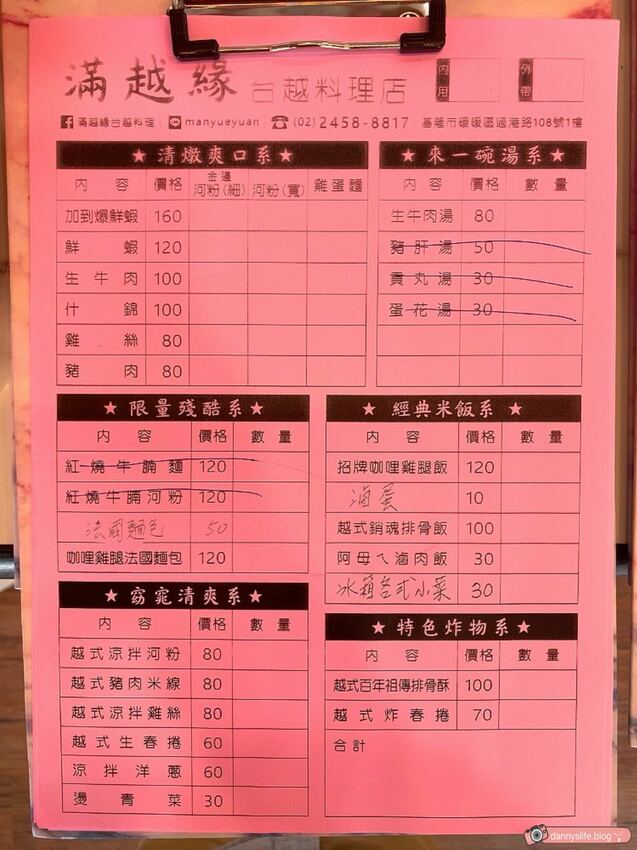 滿越緣 台越料理店 內用 外帶
滿越緣台越料理 manyueyuan (02) 2458-8817 基隆市暖暖區過港路108號1樓
★ 清燉爽口系 ★
內容 價格 金邊河粉(細) 河粉(寬) 雞蛋麵
加到爆鮮蝦 160
鮮蝦 120
生牛肉 100
什錦 100
雞絲 80
豬肉 80
★ 來一碗湯系 ★
內容 價格 數量
生牛肉湯 80
豬肝湯 50
貢丸湯 30
蛋花湯 30
★ 限量殘酷系 ★
內容 價格 數量
紅燒牛腩麵 120
紅燒牛腩河粉 120
法國麵包 50
咖哩雞腿法國麵包 120
★ 經典米飯系 ★
內容 價格 數量
招牌咖哩雞腿飯 120
滷蛋 10
越式銷魂排骨飯 100
阿母ㄟ滷肉飯 30
冰箱各式小菜 30
★ 窈窕清爽系 ★
內容 價格 數量
越式涼拌河粉 80
越式豬肉米線 80
越式涼拌雞絲 80
越式生春捲 60
涼拌洋蔥 60
燙青菜 30
★ 特色炸物系 ★
內容 價格 數量
越式百年祖傳排骨酥 100
越式炸春捲 70
合計
dannyslife.blog